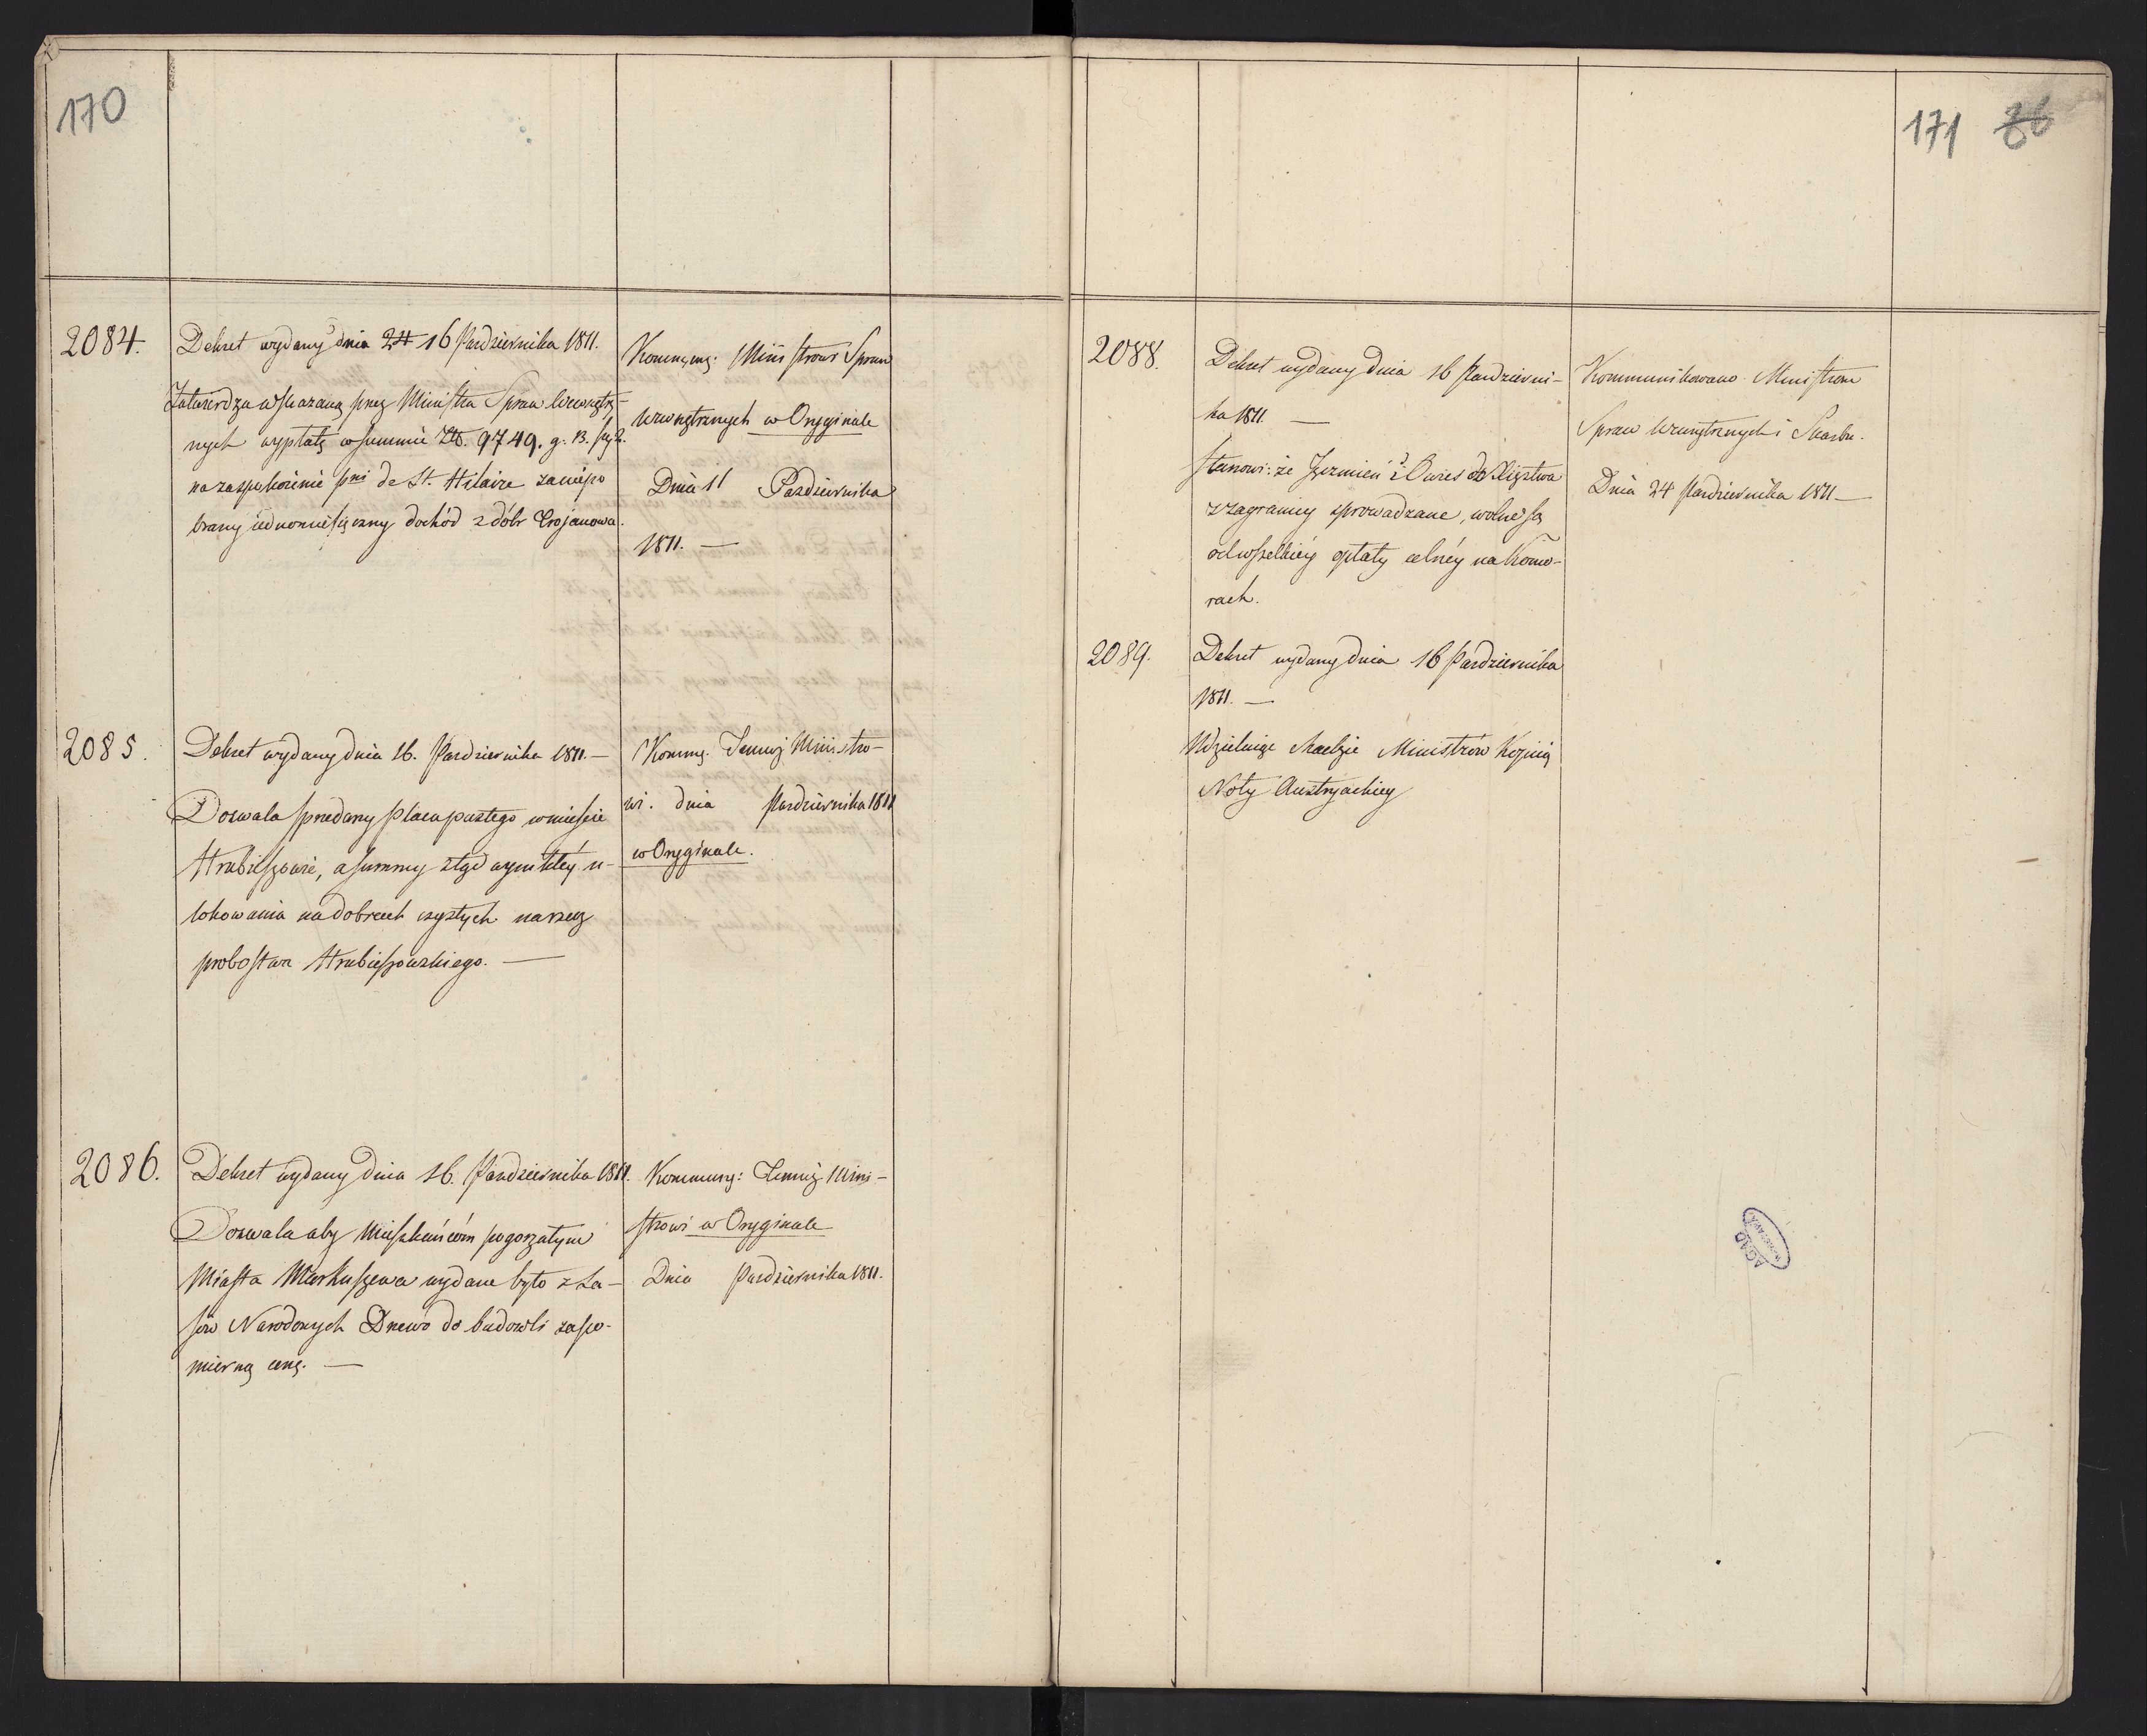 170
2084.
Dekret wydany dnia 24 16 Pazdziernika 1811.
Zatwierdza wskazaną przez Ministra Spraw Wewnętrz-
nych wypłatę w summie Zł. 9749. g. 13.
na zaspokoienie pni de St. Hilaire za niepo
brany iednomiesięczny dochód z dóbr Trojanowa.
Kommug: Ministrowi Spraw
Wewnętrznych w Oryginale
Dnia 11 Pazdziernika
1811. —
2085.
Dekret wydany dnia 16. Pazdziernika 1811. —
Dozwala sprzedarzy placu pustego w mieście
Hrubieszowie, a summy ztąd wynikłéy u-
lokowania na dobrach czystych na rzecz
probostwa Hrubieszowskiego. —
Kommug. Temuż Ministro-
wi. dnia Pazdziernika 1811
w Oryginale.
2086.
Dekret wydany dnia 16. Pazdziernika 1811.
Dozwala aby Mieszkańcóm pogorzałym
Miasta Markuszewa wydane było z La-
sów Narodowych Drzewo do budowli za po-
mierną cenę. —
Kommung: Temuż Mini-
strowi w Oryginale
Dnia Pazdziernika 1811.
171 86
2088.
Dekret wydany dnia 16 Pazdzierni-
ka 1811. —
Stanowi: że Jęczmień i Owies do Xięztwa
z zagranicy sprowadzane, wolne są
od wszelkiéy opłaty celnéy na Komo-
rach.
Kommunikowano Ministrom
Spraw Wewnętrznych i Skarbu.
Dnia 24 Pazdziernika 1811 —
2089.
Dekret wydany dnia 16 Pazdziernika
1811. —
Udzielaiąc Radzie Ministrów Kopiią
Noty Austryackiey
AGAD
WARSZAWA